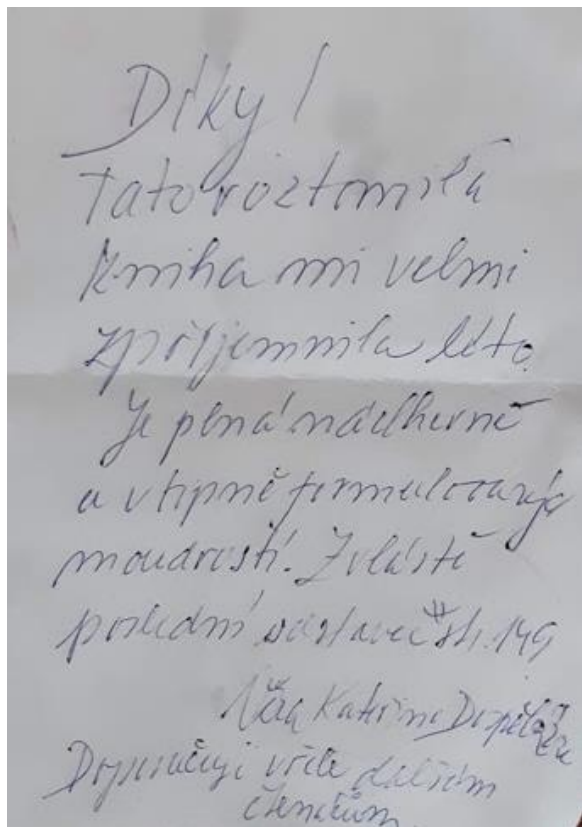 Díky!
Tato roztomilá
kniha mi velmi
zpříjemnila léto.
Je plná nádherně
a vtipně formulovaných
moudrostí. Zvláště
poslední odstavec str. 149
Kateřina
Doporučuji vřele dalším
čtenářům